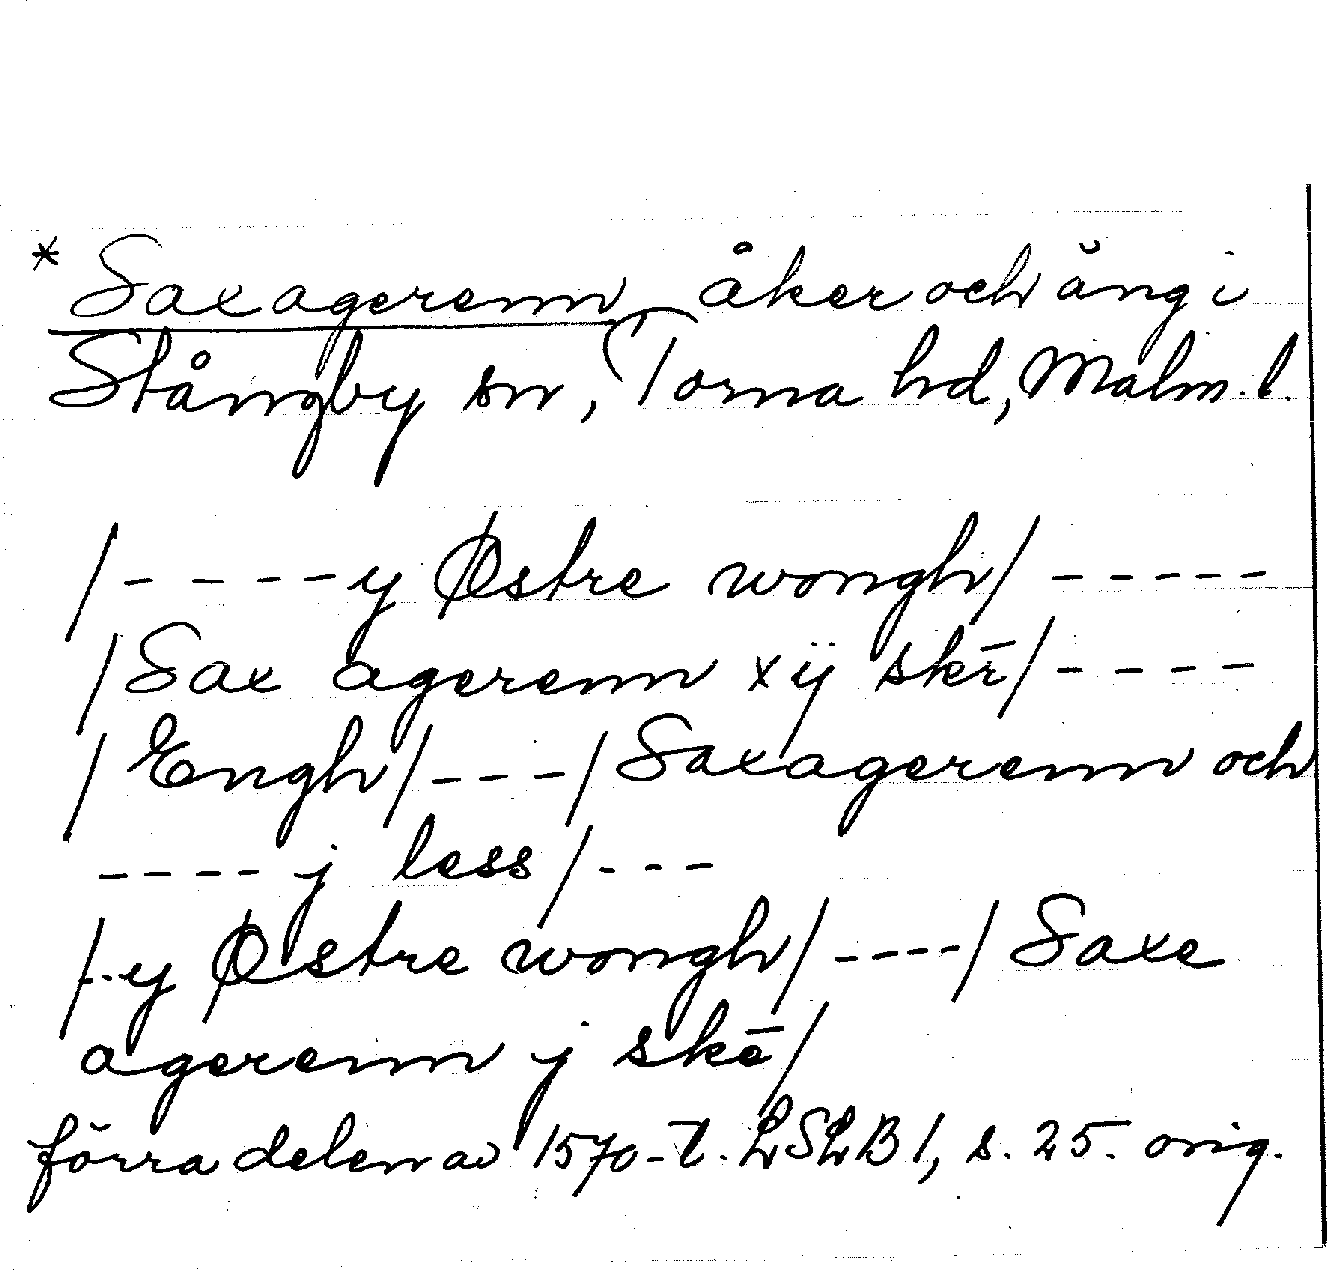 * Saxagerenn, åker och äng i
Stångby sn, Torna hd, Malm. l.
/----y Østre wongh/-----
/Sax agerenn xij skr̄/----
/Engh/---/Saxagerenn och
---- j less/---
/--y Østre wongh/----/Saxe
agerenn j skē/
förra delen av 1570-t. LSLB 1, s. 25. orig.